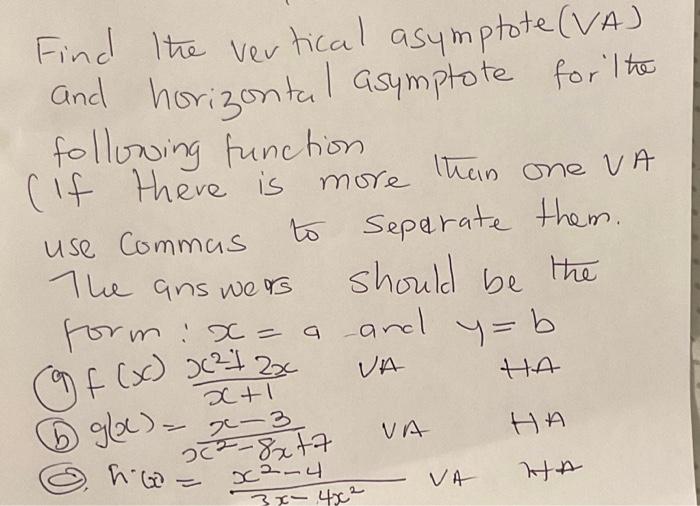 Find the vertical asymptote (VA)
and horizontal asymptote for the
following function
(If there is more than one VA
use commas to separate them.
The answers should be the
form : x = a and y = b
(a) f(x) x²+2x / x+1 VA HA
(b) g(x) = x-3 / x²-8x+7 VA HA
(c) h(x) = x²-4 / 3x-4x² VA HA